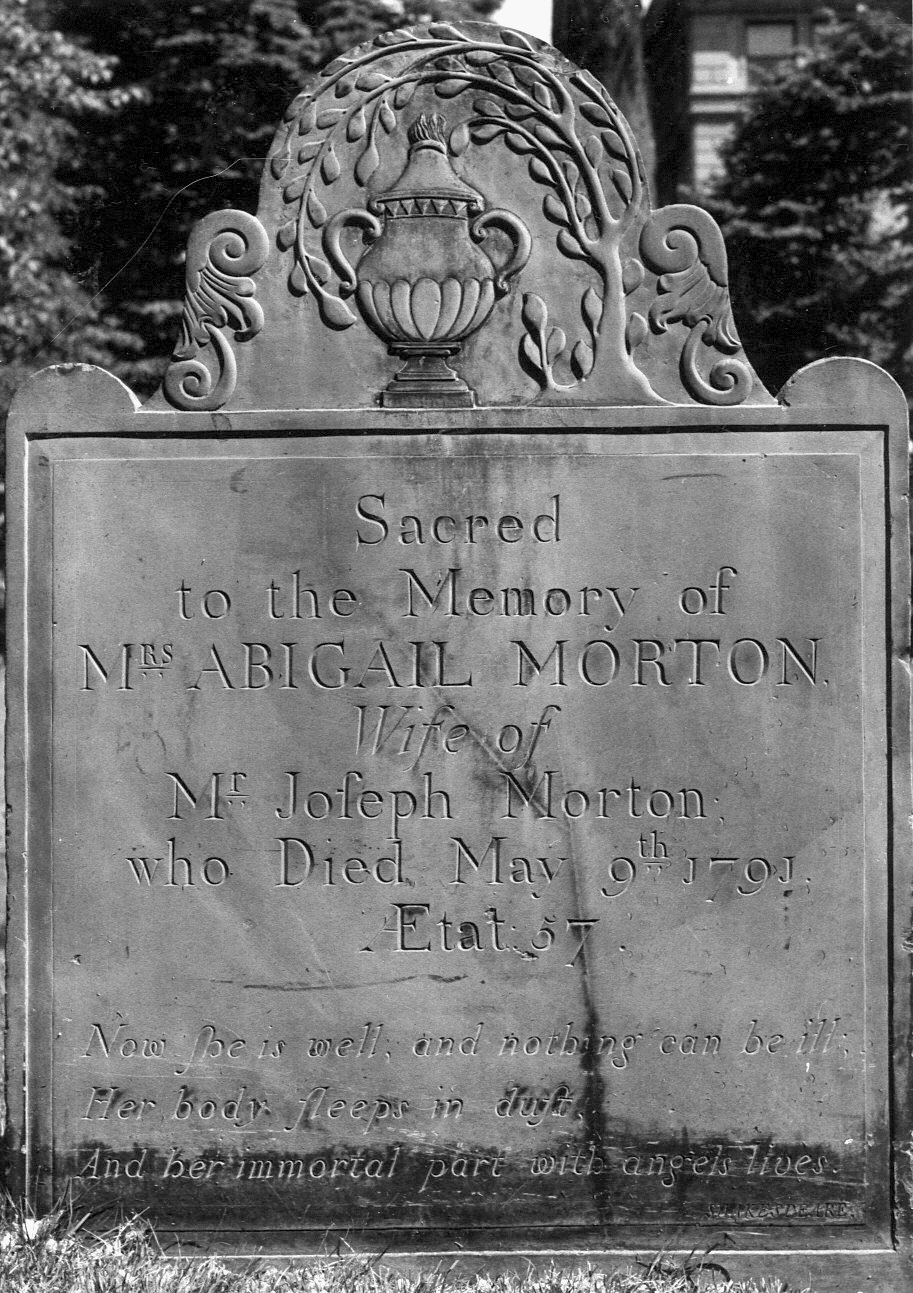 Sacred
to the Memory of
Mrs ABIGAIL MORTON.
Wife of
Mr Joſeph Morton;
who Died May 9th 1791.
Ætat: 57.
Now ſhe is well, and nothing can be ill;
Her body ſleeps in duſt,
And her immortal part with angels lives.
SHAKESPEARE.